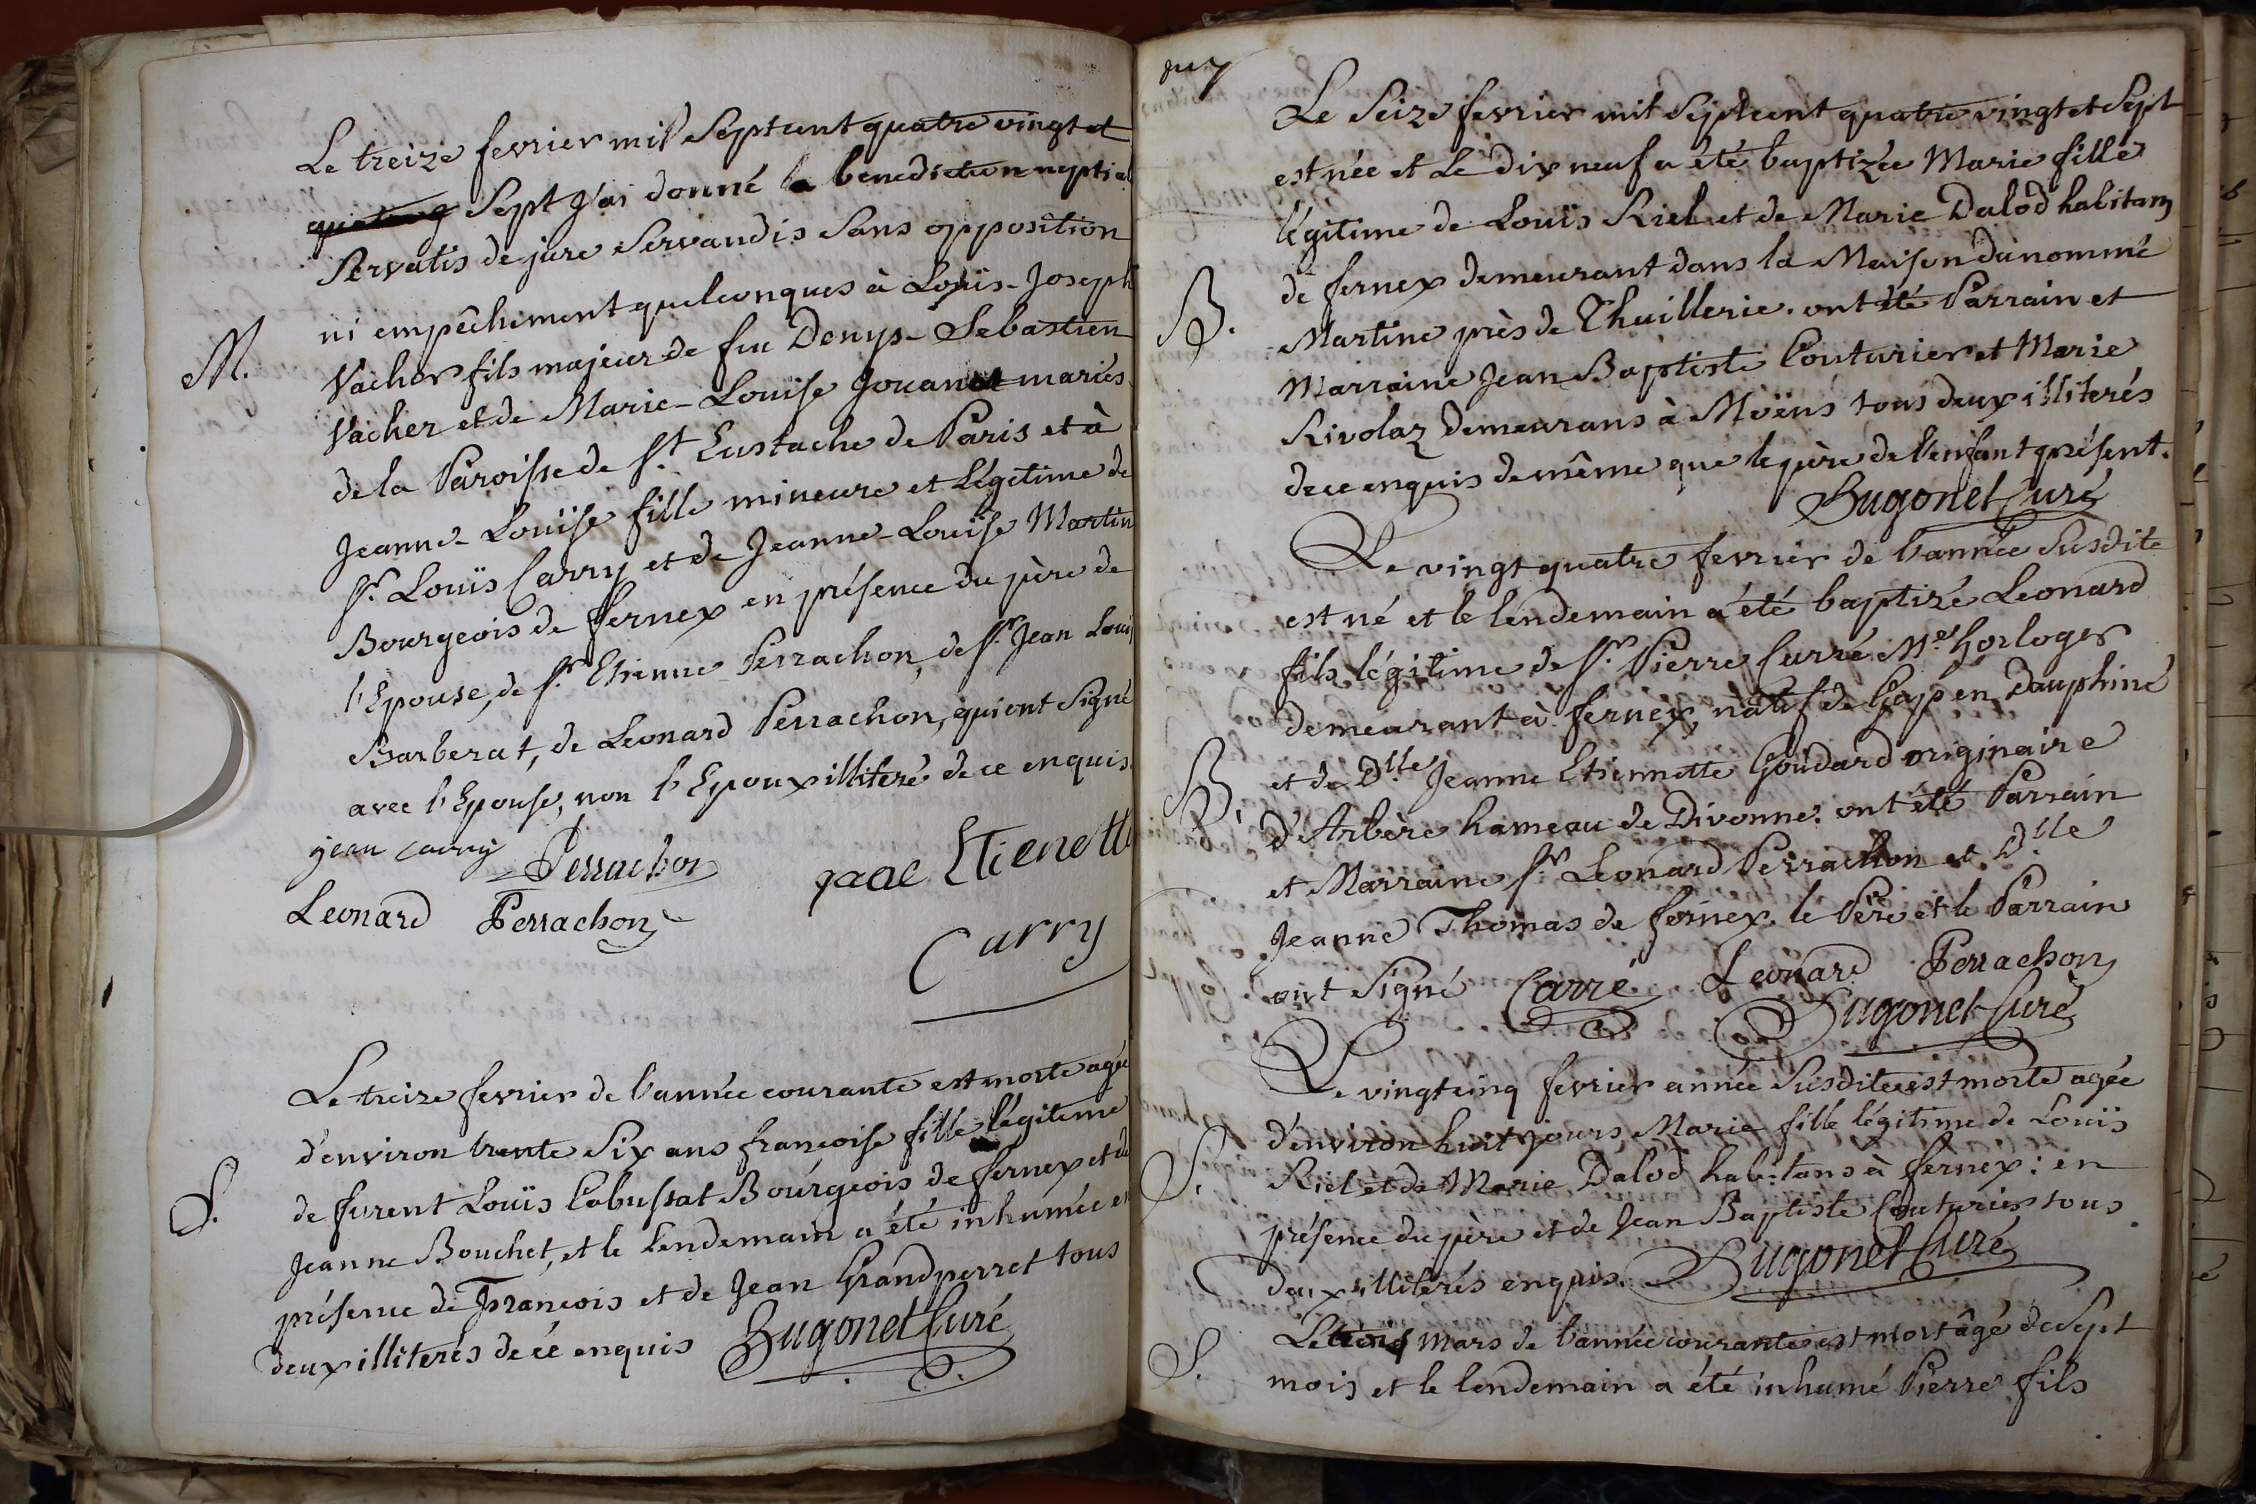 Le treize fevrier mil Sept cent quatre vingt et
Sept J'ai donné la benediction nuptial
Servatis de jure Servandis Sans opposition
ni empêchement quelconques à Loüis-Joseph
M.
Vacher fils majeur de feu Denys-Sebastien
Vacher et de Marie-Louise Jouanet mariés
de la Paroisse de St. Eustache de Paris et à
Jeanne-Louïse fille mineure et Légitime de
Sr. Louïs Carry et de Jeanne-Louïse Martin
Bourgeois de fernex en présence du père de
l'Epouse, de Sr. Etienne Perrachon, de Sr. Jean Louis
Barberat, de Leonard Perrachon, qui ont Signé
avec l'Epouse, non l'Epoux illiteré de ce enquis.
jean carry Perrachon
Leonard Perrachon
Etienette
Carry
Le treize fevrier de l'année courante est morte agée
d'environ trente Six ans françoise fille légitime
S.
de furent Louïs Cabussat Bourgeois de fernex et de
Jeanne Bouchet, et le lendemain a été inhumée en
présence de François et de Jean Grandperret tous
deux illiterés de cé enquis Bugonet Curé
Le Seize fevrier mil Sept cent quatre vingt et Sept
est née et Le dix neuf a été baptizée Marie fille
légitime de Louïs Riel et de Marie Dalod habitans
de fernex demeurant dans la Maison du nommé
B.
Martine près de Thuillerie. ont été Parrain et
Marraine Jean Baptiste Couturier et Marie
Rivolaz Demeurans à Moëns tous deux illiterés
de ce enquis de même que le père de l'enfant présent.
Bugonet Curé
Le vingt quatre fevrier de l'année Susdite
est né et le lendemain a été baptizé Leonard
fils légitime de Sr. Pierre Carré Me. horloger
demeurant à fernex, natif de Gap en Dauphiné
B.
et de Dlle Jeanne Etiennette Goudard originaire
d'Arbère hameau de Divonne. ont été Parrain
et Marraine Sr. Leonard Perrachon et Dlle
Jeanne Thomas de fernex. le Père et le Parrain
ont Signé Carré Leonard Perrachon
Bugonet Curé
Le vingt cinq fevrier année Susdite est morte agée
d'environ huit jours Marie fille légitime de Louïs
S.
Riel et de Marie Dalod habitans à fernex: en
présence du père et de Jean Baptiste Couturier tous
deux illiterés enquis. Bugonet Curé
S.
Le trois mars de l'année courante est mort âgé de Sept
mois et le lendemain a été inhumé Pierre fils